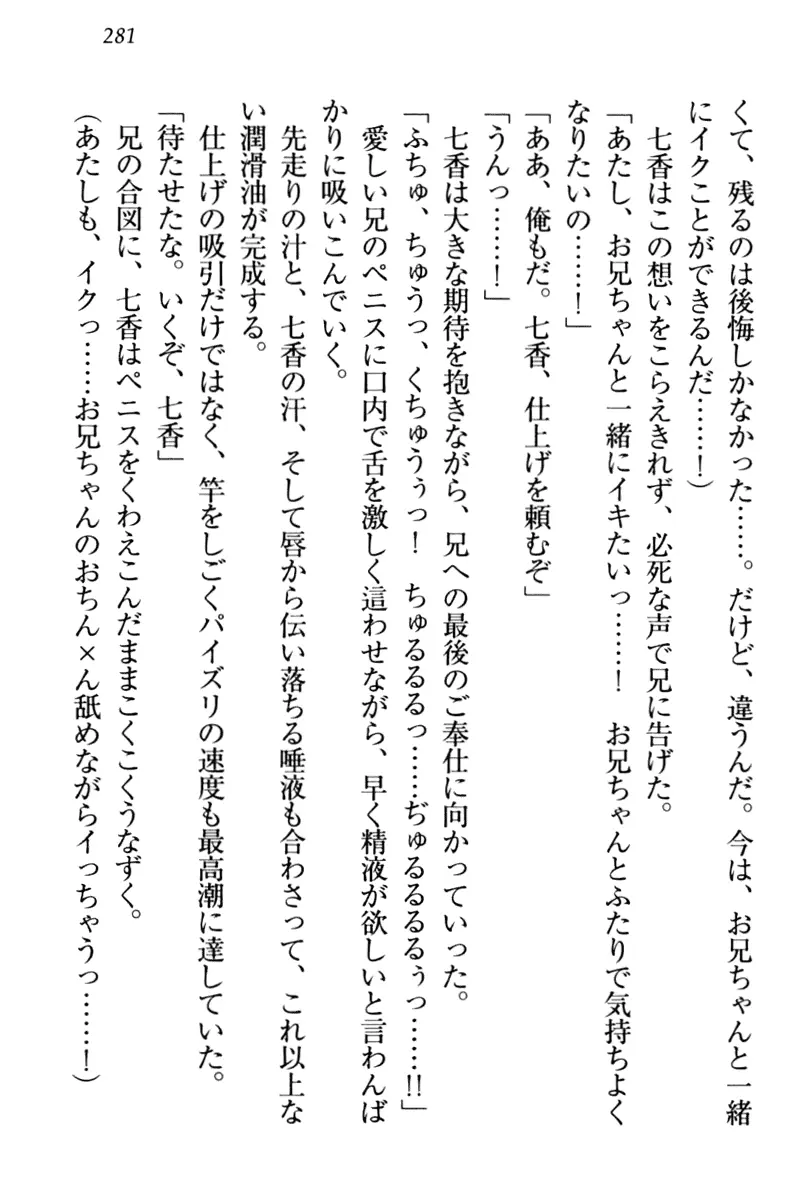 281
くて、残るのは後悔しかなかった……。だけど、違うんだ。今は、お兄ちゃんと一緒
にイクことができるんだ……！）
七香はこの想いをこらえきれず、必死な声で兄に告げた。
「あたし、お兄ちゃんと一緒にイキたいっ……！　お兄ちゃんとふたりで気持ちよく
なりたいの……！」
「ああ、俺もだ。七香、仕上げを頼むぞ」
「うんっ……！」
七香は大きな期待を抱きながら、兄への最後のご奉仕に向かっていった。
「ふちゅ、ちゅうっ、くちゅうぅっ！　ちゅるるるっ……ぢゅるるるるぅっ……!!」
愛しい兄のペニスに口内で舌を激しく這わせながら、早く精液が欲しいと言わんば
かりに吸いこんでいく。
先走りの汁と、七香の汗、そして唇から伝い落ちる唾液も合わさって、これ以上な
い潤滑油が完成する。
仕上げの吸引だけではなく、竿をしごくパイズリの速度も最高潮に達していた。
「待たせたな。いくぞ、七香」
兄の合図に、七香はペニスをくわえこんだままこくこくうなずく。
（あたしも、イクっ……お兄ちゃんのおちん×ん舐めながらイっちゃうっ……！）